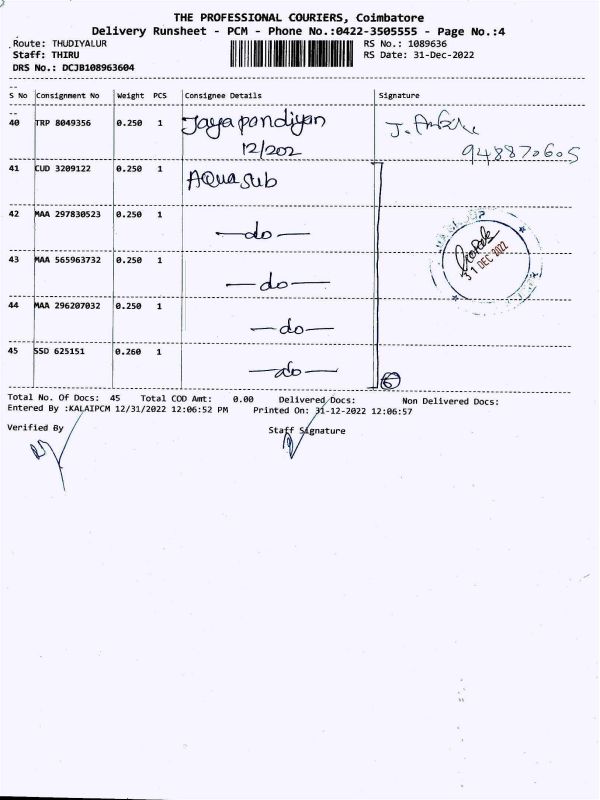 THE PROFESSIONAL COURIERS, Coimbatore
Delivery Runsheet - PCM - Phone No.:0422-3505555 - Page No.:4
Route: THUDIYALUR RS No.: 1089636
Staff: THIRU RS Date: 31-Dec-2022
DRS No.: DCJB108963604
S No Consignment No Weight PCS Consignee Details Signature
40 TRP 8049356 0.250 1 Jayapandiyan J.
12/202 948870605
41 CUD 3209122 0.250 1 AQuasub
42 MAA 297830523 0.250 1 —do—
31 DEC 2022
43 MAA 565963732 0.250 1 —do—
44 MAA 296207032 0.250 1 —do—
45 SSD 625151 0.260 1 —do—
Total No. Of Docs: 45 Total COD Amt: 0.00 Delivered Docs: Non Delivered Docs:
Entered By :KALAIPCM 12/31/2022 12:06:52 PM Printed On: 31-12-2022 12:06:57
Verified By Staff Signature